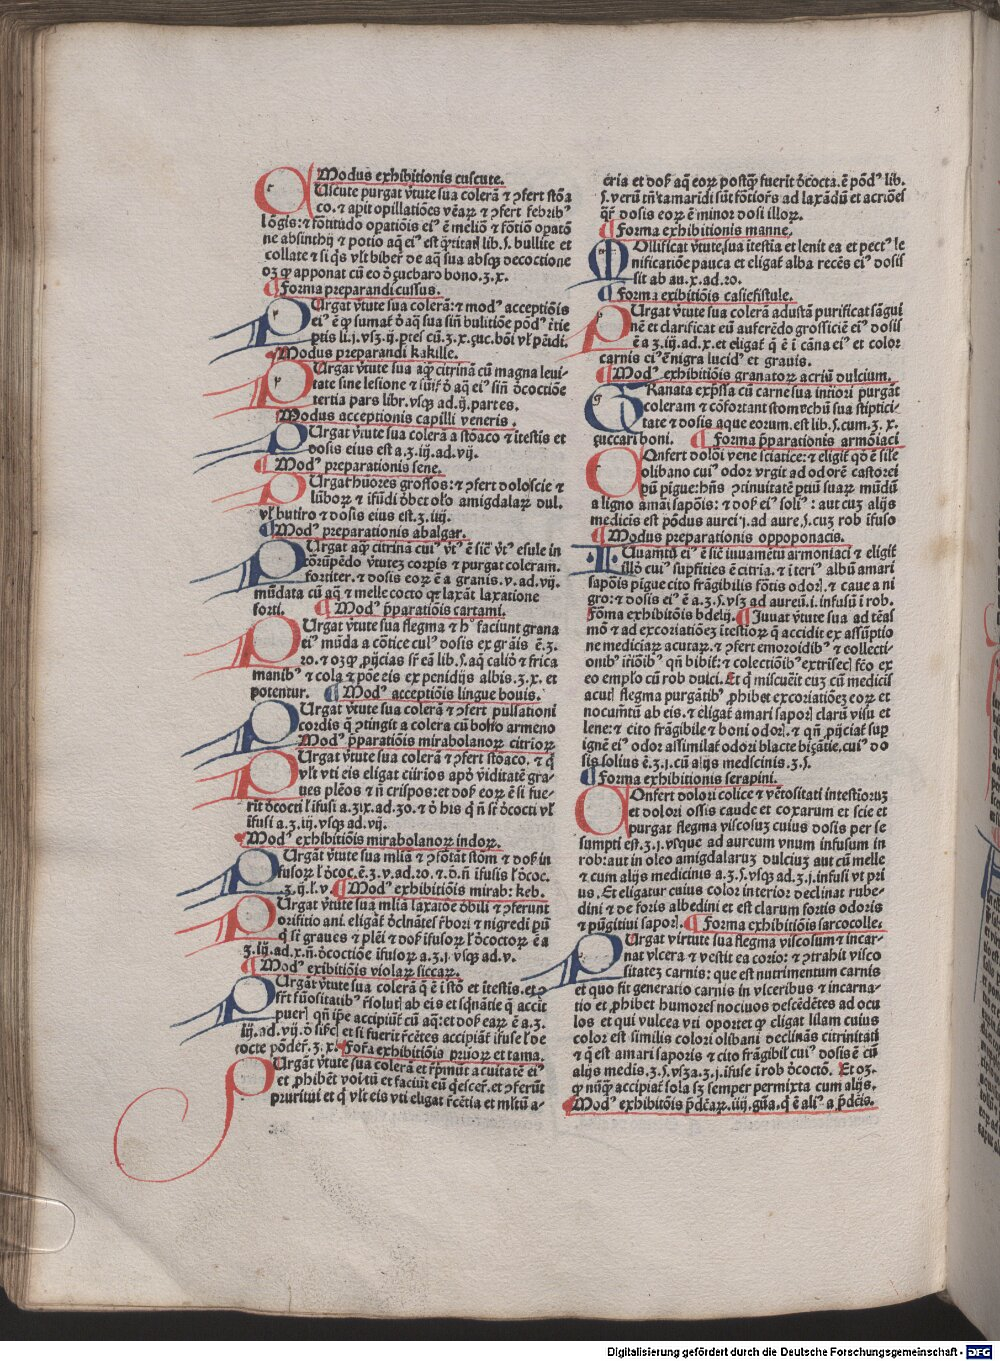 Modus exhibitionis cuscute.
CUscute purgat v̄tute sua colerā ⁊ ꝯfert stōa
co. ⁊ apit opillatiōes venaꝝ ⁊ ꝯfert febribꝰ
lōgis: ⁊ fōtitudo oꝑatiōis eiꝰ ē meliō ⁊ fōtiō oꝑatō
ne absinthij ⁊ potio aq̄ eiꝰ est lib. ꝭ. bullite et
collate ⁊ si q̄s vlt biberͤ de aq̄ sua absqꝫ decoctione
oꝫ ꝙ apponat cū eo ō ꝫucharo bono. ʒ. x.
Forma preparandi cussus.
PUrgat v̄tute sua colerā: ⁊ modꝰ acceptiōis
eiꝰ ē ꝙ sumat̄ ō aq̄ sua sin̄ bulitiōe pōdꝰ
ptis li. j. vsꝫ. ij. ptes cū. ʒ. x. ꝫuc. bōi vl̓ pēidi.
Modus preparandi kakille.
PUrgat v̄tute sua aqꝫ citrinā cū magna leui-
tate sine lesione ⁊ ō aq̄ eiꝰ sin̄ ōcoctiōe
tertia pars libr. vsqꝫ ad. ij. partes.
Modus acceptionis capilli veneris.
PUrgat v̄tute sua colerā a stōaco ⁊ ītestis et
dosis eius est a. ʒ. iij. ad. vij.
Modꝰ preparationis sene.
PUrgat hūores grossos: ⁊ ꝯfert doloscie ⁊
lūboꝝ ⁊ ifūdi ōbet olo amigdalaꝝ dul.
vl̓ butiro ⁊ dosis eius est. ʒ. iiij.
Modꝰ preparationis abalgar.
PUrgat aqꝫ citrinā cuiꝰ v̄tꝰ ē sic̄ v̄tꝰ esule in
cōrūpēdo v̄tuteꝫ corpis ⁊ purgat coleram.
fortiter. ⁊ dosis eoꝝ ē a granis. v. ad. vij.
mūdata cū aq̄ ⁊ melle cocto qꝛ laxāt laxatione
forti. Modꝰ p̄paratiōis cartami.
PUrgat v̄tute sua flegma ⁊ hꝰ faciunt grana
eiꝰ mūda a cōtice culꝰ dosis ex grāis ē. ʒ.
ꝛo. ⁊ oꝫ ꝙ ꝓijcias sr̄ eā lib. ꝭ. aq̄ calid̄ ⁊ frica
manibꝰ ⁊ cola ⁊ pōe eis ex penidijs albis. ʒ. x. et
potentur. Modꝰ acceptiōis lingue bouis.
PUrgat v̄tute sua colerā ⁊ ꝯfert pulsationi
cordis q̄ ꝯtingit a colera cū boilo armeno
Modꝰ p̄paratiōis mirabolanoꝝ citrioꝝ
PUrgat v̄tute sua colerā ⁊ ꝯfert stōaco. ⁊ q̄
vl̓t vti eis eligat citrios apō viditatē gra-
ues plēos ⁊ nō crispos: et dosꝰ eoꝝ ē si fue-
rīt ōcocti l̓ ifusi a. ʒix. ad. ʒo. ⁊ ō his q̄ n̄ st̄ ōcocti vl̓
īfusi a. ʒ. iij. vsqꝫ ad. vij.
Modꝰ exhibitiōis mirabolanoꝝ indoꝝ.
PUrgāt v̄tute sua mliā ⁊ ꝯfōtāt stom̄ ⁊ dosꝰ in
fusoꝝ l̓ ōcoc. ē. ʒ. v. ad. ꝛo. ⁊ ō. n̄ ifusis l̓ ōcoc.
ʒ. ij. l̓. v. Modꝰ exhibitiōis mirab: keb.
PUrgat v̄tute sua mliā laxatōe ōbili ⁊ ꝯferunt
orifitio ani. eligāt̄ ōclinātel̓ r̄bori ⁊ nigredi pū
q̄ st̄ graues ⁊ plēi ⁊ dosꝰ ifusoꝝ l̓ ōcoctoꝝ ē a
ʒ. iij. ad. x. n̄. ōcoctiōe ifusoꝝ a. ʒ. j. vsqꝫ ad. v.
Modꝰ exibitiōis violaꝝ siccaꝝ.
PUrgāt v̄tute sua colerā q̄ ē ī stō et ītestis. et ꝯ
fr̄t ab eis et q̄ accit
q̄n ip̄e accipiūt̄ cū aq̄: et dosꝰ eaꝝ ē a. ʒ.
iij. ad. vij. ō et si fuerit r̄cētes accipiāt̄ ifuse l̓ de
cocte pōder̄. ʒ. x. For̄a exhibitiōis pruioꝝ et tama.
PUrgāt v̄tute sua colerā et r̄p̄mūt acuitatē eiꝰ
et ꝓhibēt voītū et faciūt eū q̄escer̄. et ꝯferūt
pruritui et q̄ vl̓t eis vti eligat r̄cētia et ml̄tū a-
eria et dosꝰ aq̄ eoꝝ postqꝫ fuerit ōcocta. ē pōdꝰ lib.
ꝭ. verū tn̄ tamarīdi sūt fōtiores ad laxādū et actiōes
q̄r̄ dosis eoꝝ ē minor dosi illoꝝ.
Forma exhibitionis manne.
MOllificat v̄tute sua ītestia et lenit ea et pectꝰ le
nificatiōe pauca et eligat̄ alba recēs eiꝰ dosis
sit ab au. x. ad. ꝛo.
Forma exibitiōis casiefistule.
PUrgat v̄tute sua colerā adustā purificat sāgui
nē et clarificat eū auferēdo grossiciē eiꝰ dosis
ē a ʒ. iij. ad. x. et eligat̄ q̄ ē ī cāna eiꝰ et color
carnis eiꝰ ē nigra lucidꝰ et grauis.
Modꝰ exhibitiōis granatoꝝ acriū dulcium.
GRanata exp̄ssa cū carne sua intiori purgāt
coleram ⁊ cōfortant stomachū sua stiptici-
tate ⁊ dosis aque eorum. est lib. ꝭ. cum. ʒ. x.
ꝫuccari boni. Forma p̄parationis armōiaci
COnfert dolōi vene sciatice: ⁊ eligit̄ qō ē sile
olibano cuiꝰ odor vrgit ad odorē castorei
pū pigue: hn̄s ꝯtinuitatē ptiū suaꝝ mūdū
a ligno amāi sapōis: ⁊ dosꝰ eiꝰ soliꝰ: aut cuꝫ alijs
medicis est pōdus aurei ꝰj. ad aure. ꝭ. cuꝫ rob ifuso
Modus preparationis oppoponacis.
IUuamētū eiꝰ ē sic̄ iuuamētū armoniaci ⁊ eligit̄
illō cuiꝰ supfities ē citria. ⁊ īteriꝰ albū amari
sapōis pigue cito frāgibilis fōtis odoꝝ ⁊ caue a ni
gro: ⁊ dosis eiꝰ ē a. ʒ. ꝭ. vsꝫ ad aureū. i. infusū ī rob.
Fōma exhibitiōis bdelij. Iuuat v̄tute sua ad tēas
mō ⁊ ad excoriatiōeꝫ ītestioꝝ q̄ accidit ex assūptio
ne mediciaꝝ acutaꝝ. ⁊ ꝯfert emoroidibꝰ ⁊ collecti-
onibꝰ ītiōibꝰ qn̄ bibit̄: ⁊ colectiōibꝰ extrisecꝭ fc̄o ex
eo emplo cū rob dulci. Et q̄ miscuēit cuꝫ cū medicis
acutꝭ flegma purgātibꝰ ꝓhibet excoriatiōeꝫ eoꝝ et
nocumētū ab eis. ⁊ eligat̄ amari saporꝭ clarū visu et
lene: ⁊ cito frāgibile ⁊ boni odorꝭ. ⁊ qn̄ ꝓijciat̄ sup
ignē eiꝰ odor assimilat̄ odori blacte biꝫātie. cuiꝰ do
sis solius ē. ʒ. j. cū alijs medicinis. ʒ. ꝭ.
Forma exhibitionis serapini.
COnfert dolori colice ⁊ vētositati intestioruꝫ
et dolori ossis caude et coxarum et scie et
purgat flegma viscosuꝫ cuius dosis per se
sumpti est. ʒ. j. vsque ad aureum vnum infusum in
rob: aut in oleo amigdalaruꝫ dulciuꝫ aut cū melle
⁊ cum alijs medicinis a. ʒ. ꝭ. vsqꝫ ad. ʒ. j. infusi vt pri
us. Et eligatur cuius color interior declinat rube-
dini ⁊ de foris albedini et est clarum fortis odoris
⁊ pūgitiui saporꝭ. Forma exhibitiōis sarcocolle.
PUrgat virtute sua flegma viscosum ⁊ incar-
nat vlcera ⁊ vestit ea corio: ⁊ ꝯtrahit visco
sitateꝫ carnis: que est nutrimentum carnis
et quo fit generatio carnis in vlceribus ⁊ incarna-
tio et ꝓhibet humores nociuos descēdētes ad ocu
los et qui vulcea vti oportet ꝙ eligat illam cuius
color est similis colori olibani declināns citrinitati
⁊ q̄ est amari saporis ⁊ cito frāgibil̓ cuiꝰ dosis ē cū
alijs medis. ʒ. ꝭ. vsꝫa. ʒ. j. ifuse ī rob ōcoctō. Et oꝫ.
ꝙ nūqꝫ accipiat̄ sola sꝫ semper permixta cum alijs.
Modꝰ exhibitiōis p̄dc̄aꝝ. iiij. gūa. q̄ ē aliꝰ a p̄dc̄is.
Digitalisierung gefördert durch die Deutsche Forschungsgemeinschaft - DFG